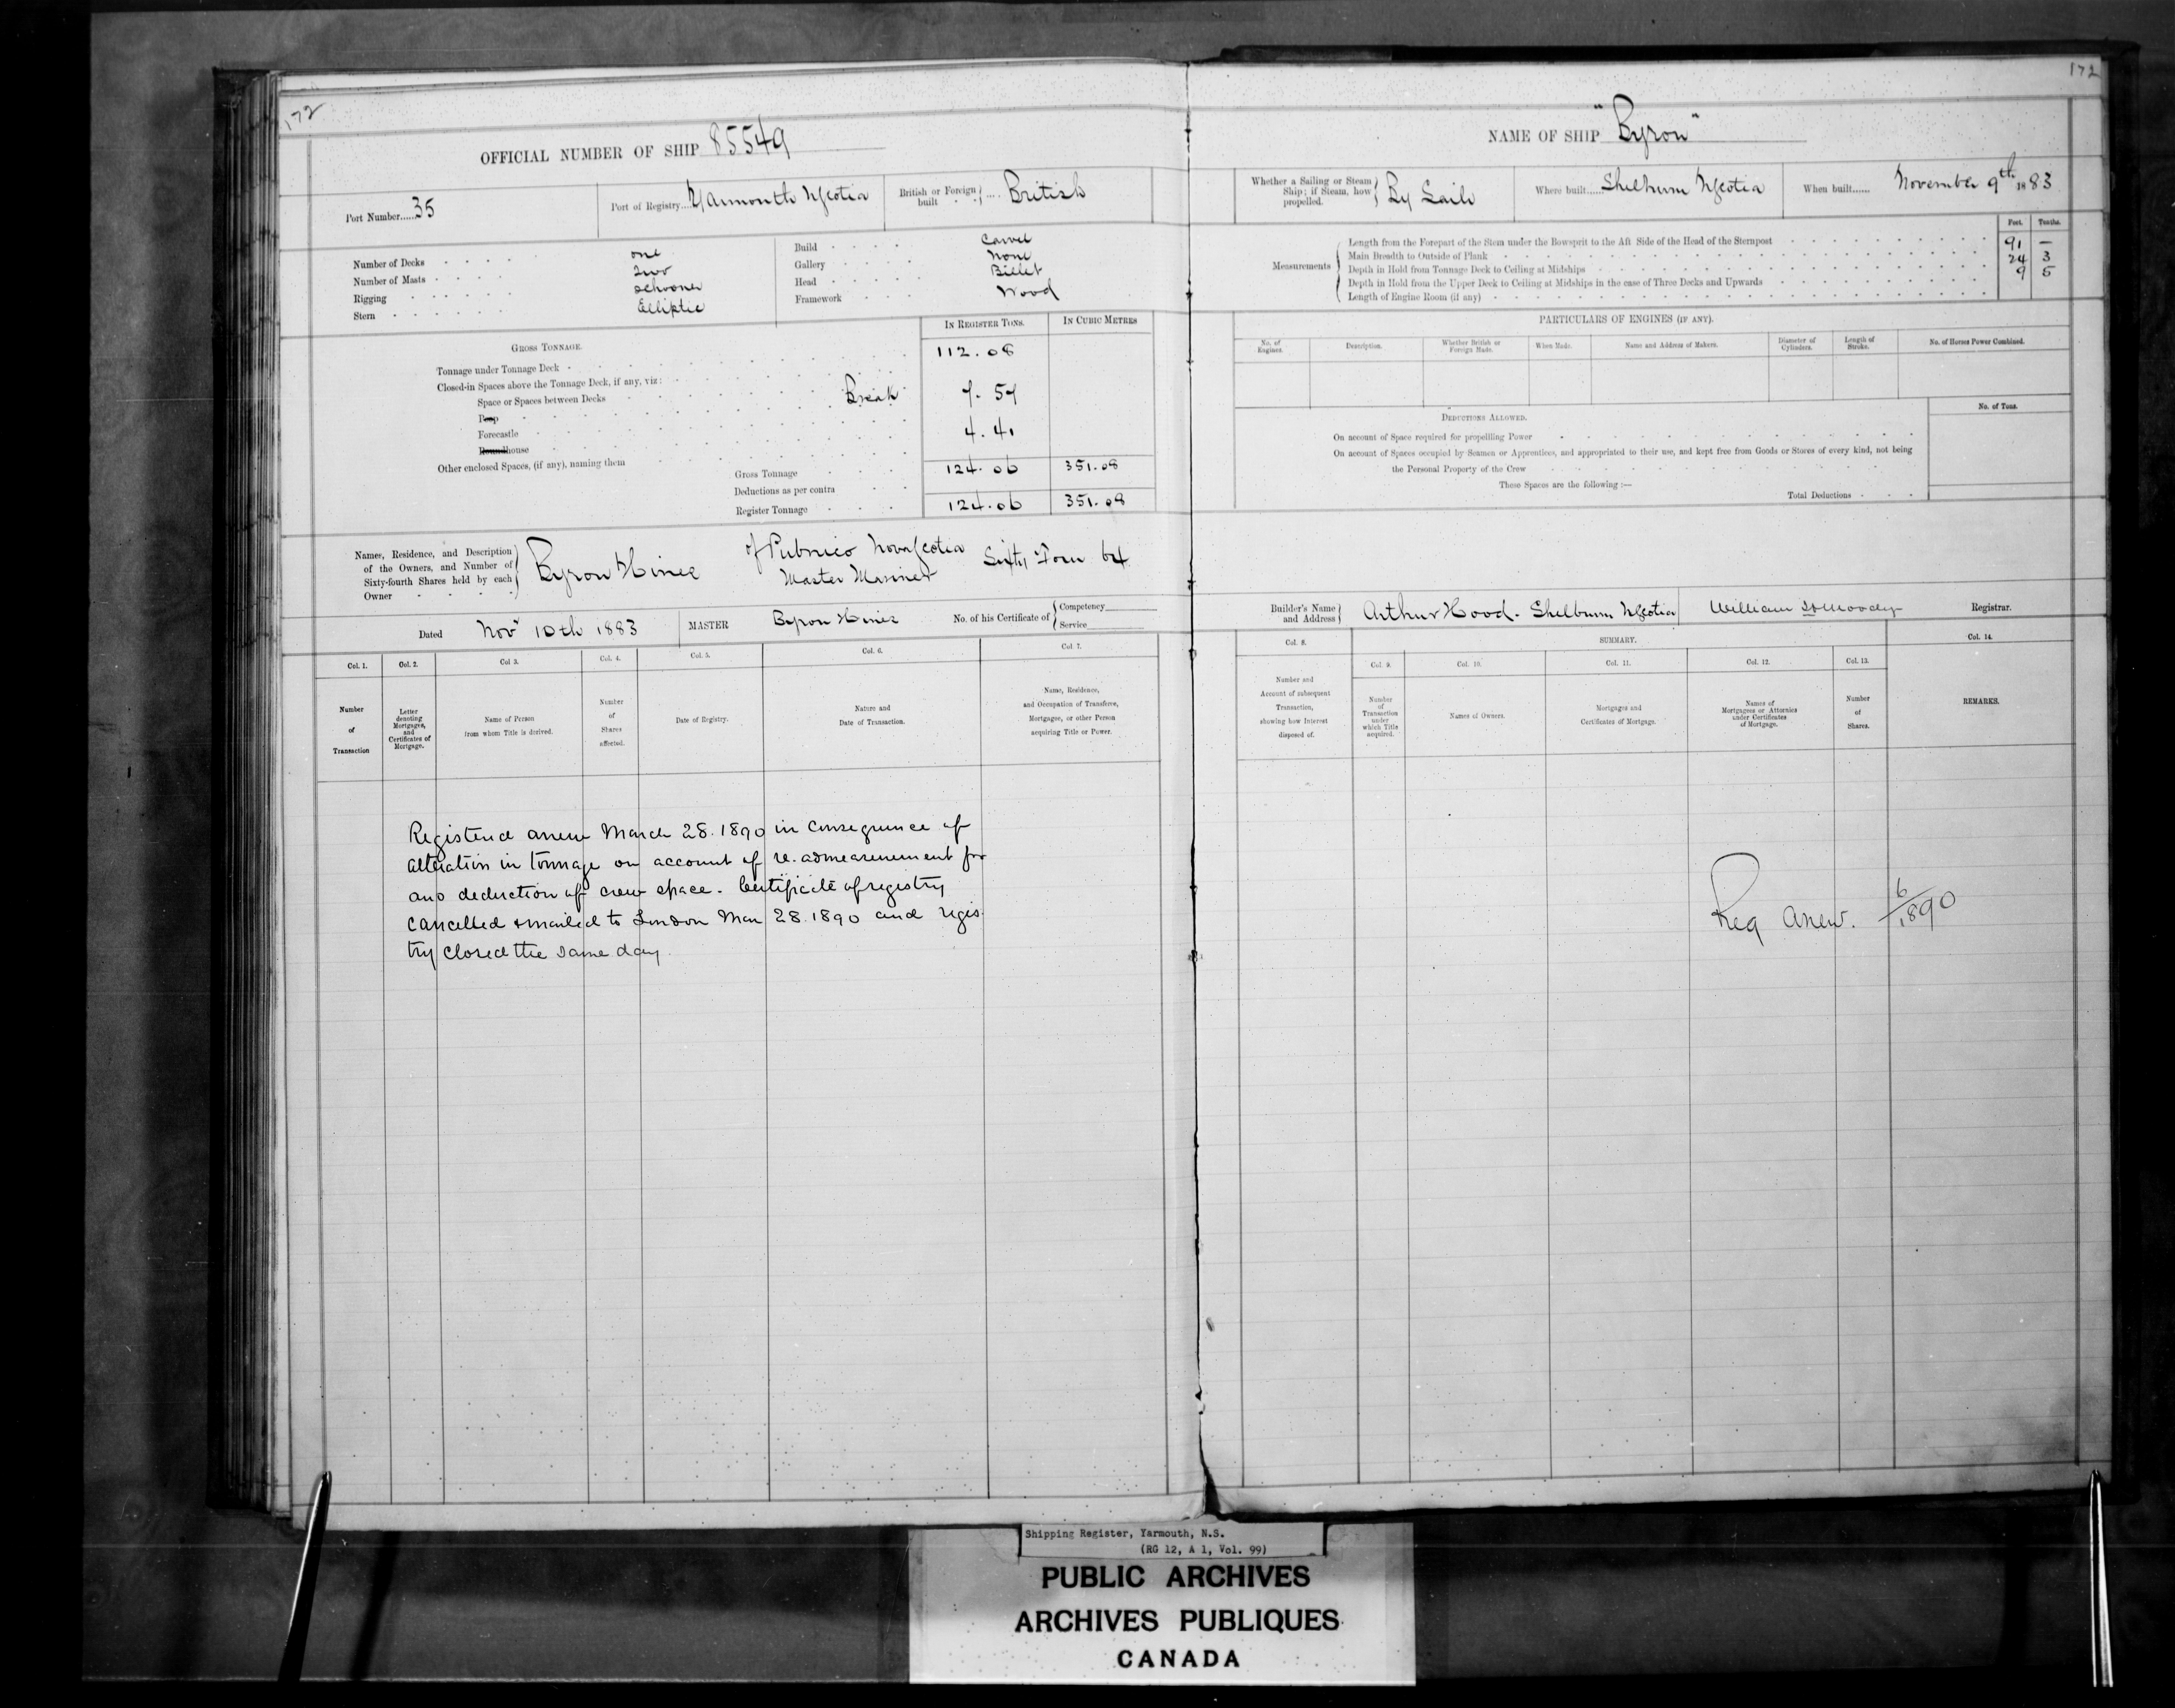 172
172
OFFICIAL NUMBER OF SHIP 85549
NAME OF SHIP "Byron"
Port Number......35
Port of Registry...Yarmouth NScotia
British or Foreign built } .... British
Whether a Sailing or Steam Ship; if Steam, how propelled. } By Sails
Where built.....Shelburn NScotia
When built...... November 9th 1883
Number of Decks one
Number of Masts Two
Rigging Schooner
Stern Elliptic
Build Carvel
Gallery None
Head Billet
Framework Wood
Measurements
Feet. Tenths.
Length from the Forepart of the Stem under the Bowsprit to the Aft Side of the Head of the Sternpost 91 —
Main Breadth to Outside of Plank 24 3
Depth in Hold from Tonnage Deck to Ceiling at Midships 9 5
Depth in Hold from the Upper Deck to Ceiling at Midships in the case of Three Decks and Upwards
Length of Engine Room (if any)
GROSS TONNAGE.
IN REGISTER TONS. IN CUBIC METRES
Tonnage under Tonnage Deck 112.08
Closed-in Spaces above the Tonnage Deck, if any, viz:
Space or Spaces between Decks
Poop Break 7.57
Forecastle
Roundhouse 4.41
Other enclosed Spaces, (if any), naming them
Gross Tonnage 124.06 351.08
Deductions as per contra
Register Tonnage 124.06 351.08
PARTICULARS OF ENGINES (IF ANY).
No. of Engines. Description. Whether British or Foreign Made. When Made. Name and Address of Makers. Diameter of Cylinders. Length of Stroke. No. of Horses Power Combined.
DEDUCTIONS ALLOWED.
No. of Tons.
On account of Space required for propelling Power
On account of Spaces occupied by Seamen or Apprentices, and appropriated to their use, and kept free from Goods or Stores of every kind, not being
the Personal Property of the Crew
These Spaces are the following :—
Total Deductions
Names, Residence, and Description
of the Owners, and Number of
Sixty-fourth Shares held by each
Owner
Byron Hines
of Pubnico Nova Scotia
Master Mariner
Sixty Four 64
Dated Novr 10th 1883
MASTER Byron Hines
No. of his Certificate of { Competency
Service
Builder's Name and Address } Arthur Hood. Shelburn NScotia
William H Moody Registrar.
Col. 1. Col. 2. Col 3. Col. 4. Col. 5. Col. 6. Col. 7.
Number of Transaction
Letter denoting Mortgages, and Certificates of Mortgage.
Name of Person from whom Title is derived.
Number of Shares affected.
Date of Registry.
Nature and Date of Transaction.
Name, Residence, and Occupation of Transferee, Mortgagee, or other Person acquiring Title or Power.
Col. 8. SUMMARY. Col. 14.
Col. 9. Col. 10. Col. 11. Col. 12. Col. 13.
Number and Account of subsequent Transaction, showing how Interest disposed of.
Number of Transaction under which Title acquired.
Names of Owners.
Mortgages and Certificates of Mortgage.
Names of Mortgagees or Attornies under Certificates of Mortgage.
Number of Shares.
REMARKS.
Registered anew March 28.1890 in consequence of
alteration in tonnage on account of re.admeasurement for
and deduction of crew space. Certificate of registry
cancelled & mailed to London Mar 28.1890 and regis
try closed the same day
Reg Anew. 6/1890
Shipping Register, Yarmouth, N.S.
(RG 12, A 1, Vol. 99)
PUBLIC ARCHIVES
ARCHIVES PUBLIQUES
CANADA